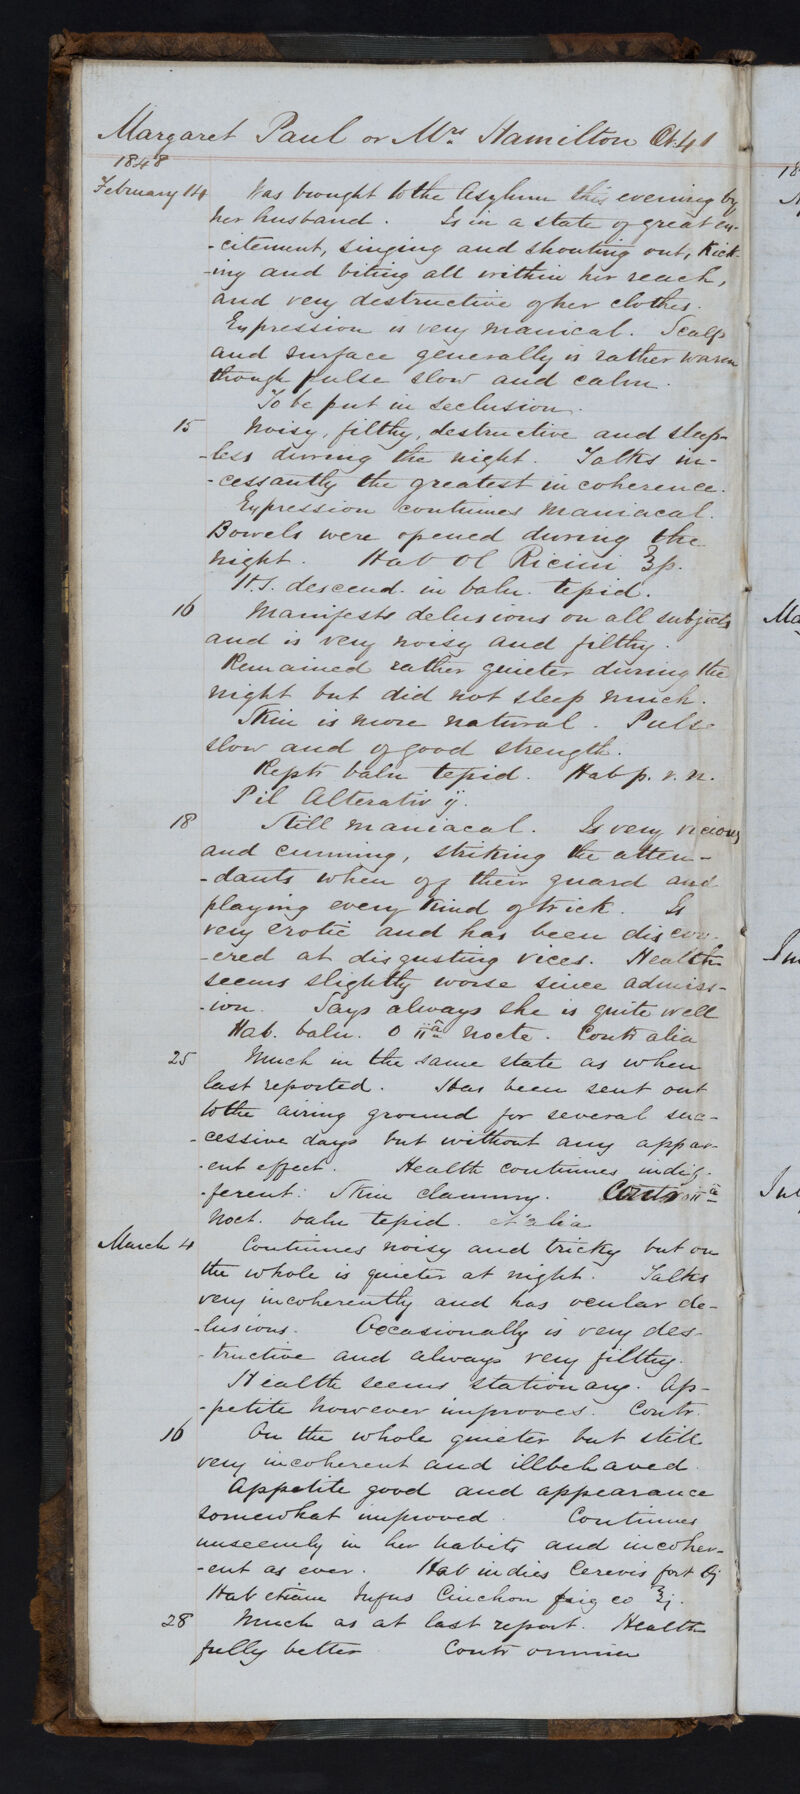 Margaret Paul or Mrs Hamilton Æt 41
1848
February 14 Was brought to the Asylum this evening by
her husband. Is in a state of great ex-
-citement, singing and shouting out, kick-
-ing and biting all within her reach,
and very destructive of her clothes.
Expression is very maniacal. Scalp
and surface generally is rather warm
though pulse slow and calm.
To be put in seclusion.
15 Noisy, filthy, destructive and sleep-
-less during the night. Talks in-
-cessantly the greatest incoherence.
Expression continues maniacal.
Bowels were opened during the
night. Hab Ol Ricini ℥p.
H.S. descend. in baln. tepid.
16 Manifests delusions on all subjects
and is very noisy and filthy.
Remained rather quieter during the
night but did not sleep much.
Skin is more natural. Pulse
slow and of good strength.
Reptr baln tepid. Hab p. r. n.
Pil Alterativ ij.
18 Still maniacal. Is very vicious
and cunning, striking the atten-
-dants when off their guard and
playing every kind of trick. Is
very erotic and has been discov-
-ered at disgusting vices. Health
seems slightly worse since admiss-
-ion. Says always she is quite well
Hab. baln. O iiâ nocte. Contr alia
25 Much in the same state as when
last reported. Has been sent out
to the airing ground for several suc-
-cessive days but without any appar-
-ent effect. Health continues indif-
-ferent: Skin clammy. Contr iiâ
noct. baln tepid. et alia
March 4 Continues noisy and tricky but on
the whole is quieter at night. Talks
very incoherently and has ocular de-
-lusions. Occasionally is very des-
-tructive and always very filthy.
Health seems stationary. Ap-
-petite however improves. Contr.
16 On the whole quieter but still
very incoherent and illbehaved.
Appetite good and appearance
somewhat improved. Continues
unseemly in her habits and incoher-
-ent as ever. Hab indies Cerevis fort ℔j
Hab etiam Infus Cinchon co ℥j.
28 Much as at last report. Health
fully better Contr omnia
18
Ma
Jun
Jul